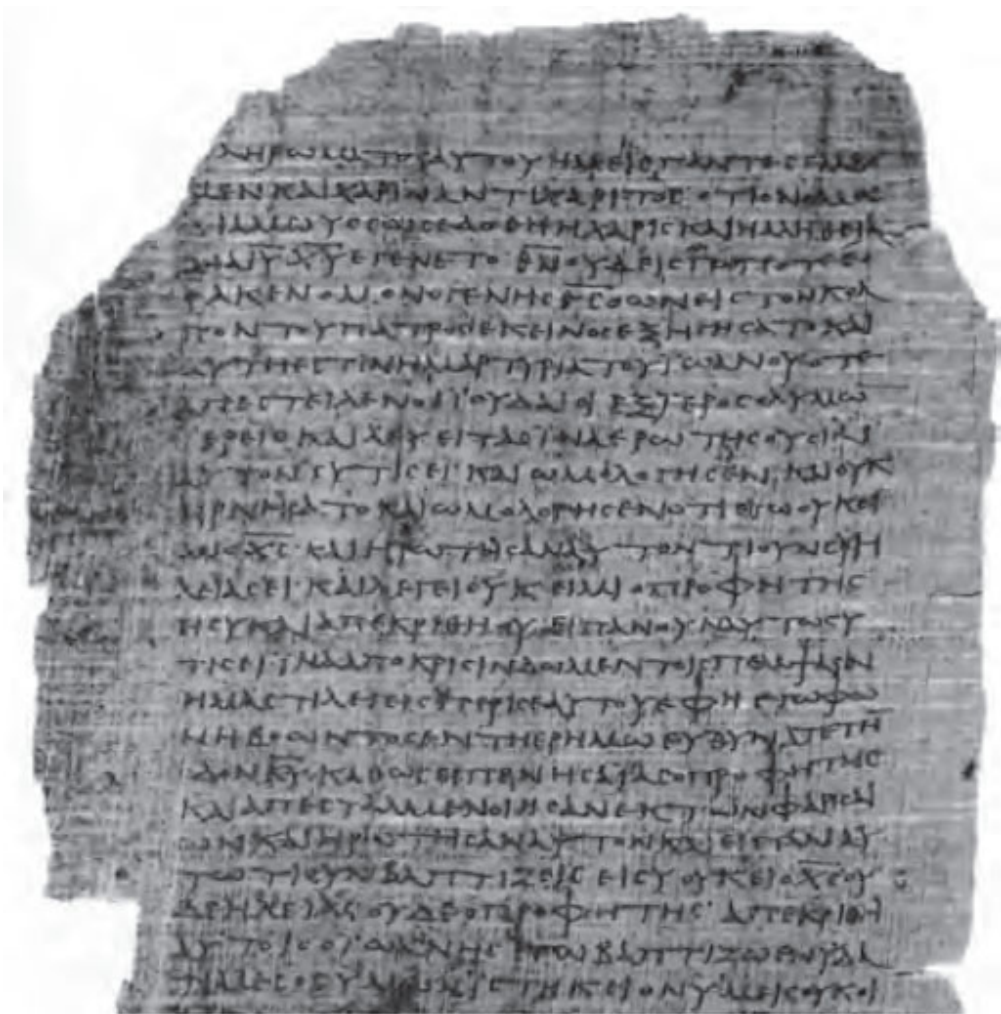 ΛΗΡΩΜΑΤΟϹΑΥΤΟΥΗΜΕΙϹΠΑΝΤΕϹΕΛΑΒΟ
ΜΕΝΚΑΙΧΑΡΙΝΑΝΤΙΧΑΡΙΤΟϹ·ΟΤΙΟΝΟΜΟϹ
ΔΙΑΜΩΥϹΕΩϹΕΔΟΘΗΗΧΑΡΙϹΚΑΙΗΑΛΗΘΕΙΑ
ΔΙΑΙ̅Υ̅Χ̅Υ̅ΕΓΕΝΕΤΟ·Θ̅Ν̅ΟΥΔΕΙϹΠΩΠΟΤΕΕΟ
ΡΑΚΕΝΟΜΟΝΟΓΕΝΗϹΘ̅Ϲ̅ΟΩΝΕΙϹΤΟΝΚΟΛ
ΠΟΝΤΟΥΠΑΤΡΟϹΕΚΕΙΝΟϹΕΞΗΓΗϹΑΤΟΚΑΙ
ΑΥΤΗΕϹΤΙΝΗΜΑΡΤΥΡΙΑΤΟΥΙΩΑΝΟΥΟΤΕ
ΑΠΕϹΤΕΙΛΕΝΟΙΙΟΥΔΑΙΟΙΕΞΙΕΡΟϹΟΛΥΜΩ̅
ΙΕΡΕΙϹΚΑΙΛΕΥΕΙΤΑϹΙΝΑΕΡΩΤΗϹΟΥϹΙΝ
ΑΥΤΟΝϹΥΤΙϹΕΙ·ΚΑΙΩΜΟΛΟΓΗϹΕΝ·ΚΑΙΟΥΚ
ΗΡΝΗϹΑΤΟΚΑΙΩΜΟΛΟΓΗϹΕΝΟΤΙΕΓΩΟΥΚΕΙ
ΜΙΟΧ̅Ϲ̅·ΚΑΙΗΡΩΤΗϹΑΝΑΥΤΟΝΤΙΟΥΝϹΥΗ
ΛΕΙΑϹΕΙ·ΚΑΙΛΕΓΕΙΟΥΚΕΙΜΙΟΠΡΟΦΗΤΗϹ
ΕΙϹΥΚΑΙΑΠΕΚΡΙΘΗΟΥ·ΕΙΠΑΝΟΥΝΑΥΤΩϹΥ
ΤΙϹΕΙ·ΙΝΑΑΠΟΚΡΙϹΙΝΔΩΜΕΝΤΟΙϹΠΕΜΨΑϹΙΝ
ΗΜΑϹΤΙΛΕΓΕΙϹΠΕΡΙϹΕΑΥΤΟΥΕΦΗΕΓΩΦΩ
ΝΗΒΟΩΝΤΟϹΕΝΤΗΕΡΗΜΩΕΥΘΥΝΑΤΕΤΗ̅
ΟΔΟΝΚ̅Υ̅·ΚΑΘΩϹΕΙΠΕΝΗϹΑΙΑϹΟΠΡΟΦΗΤΗϹ
ΚΑΙΑΠΕϹΤΑΛΜΕΝΟΙΗϹΑΝΕΚΤΩΝΦΑΡΙϹΑΙ
ΩΝΚΑΙΗΡΩΤΗϹΑΝΑΥΤΟΝΚΑΙΕΙΠΑΝΑΥ
ΤΩΤΙΟΥΝΒΑΠΤΙΖΕΙϹΕΙϹΥΟΥΚΕΙΟΧ̅Ϲ̅ΟΥ
ΔΕΗΛΕΙΑϹΟΥΔΕΟΠΡΟΦΗΤΗϹ·ΑΠΕΚΡΙΘΗ
ΑΥΤΟΙϹΟΙΩΑΝΗϹΕΓΩΒΑΠΤΙΖΩΕΝΥΔΑ
ΤΙΜΕϹΟϹΥΜΩΝΕΙϹΤΗΚΕΙΟΝΥΜΕΙϹΟΥΚΟΙ